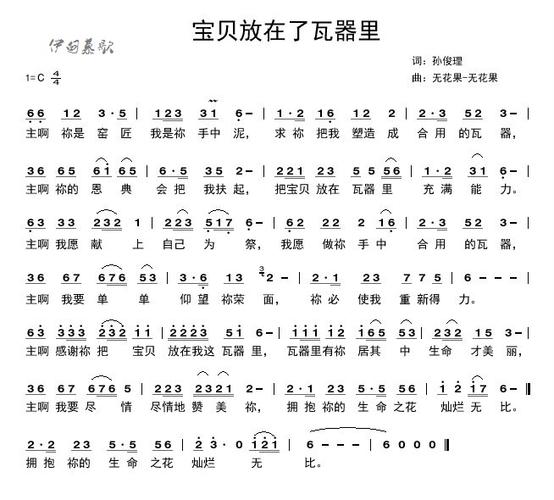 宝贝放在了瓦器里
伊甸慕歌
词：孙俊理
1=C 4/4
曲：无花果-无花果
66 12 3·5 | 123 31 6- | 1·2 16 2·3 52 3- |
主啊 祢是 窑 匠 我是祢 手中 泥， 求 祢 把我 塑造 成 合用 的瓦 器，
36 65 61 65 | 6·5 35 3- | 221 25 55 56 | 1·2 31 6- |
主啊 祢的 恩 典 会把 我扶 起， 把宝贝 放在 瓦器 里 充满 能 力。
63 33 232 1 | 223 517 6- | 62 22 2 16 | 2·3 52 3- |
主啊 我愿 献 上 自己 为 祭， 我愿 做祢 手 中 合用 的瓦 器，
36 67 676 53 | 3·6 13 2- | 2·1 23
主啊 我要 单 单 仰望 祢荣 面， 祢必 使我 重 新得 力。
主啊 感谢祢 把 宝贝 放在我这 瓦器 里， 瓦器里有祢 居其 中 生命 才美 丽，
主啊 我要 尽 情 尽情地 赞 美 祢， 拥抱 祢的 生 命 之花 灿烂 无 比。
2·2 23 5·5 56 | 2 3·0 121 | 6--- | 6000 ‖
拥 抱 祢的 生 命 之花 灿烂 无 比。